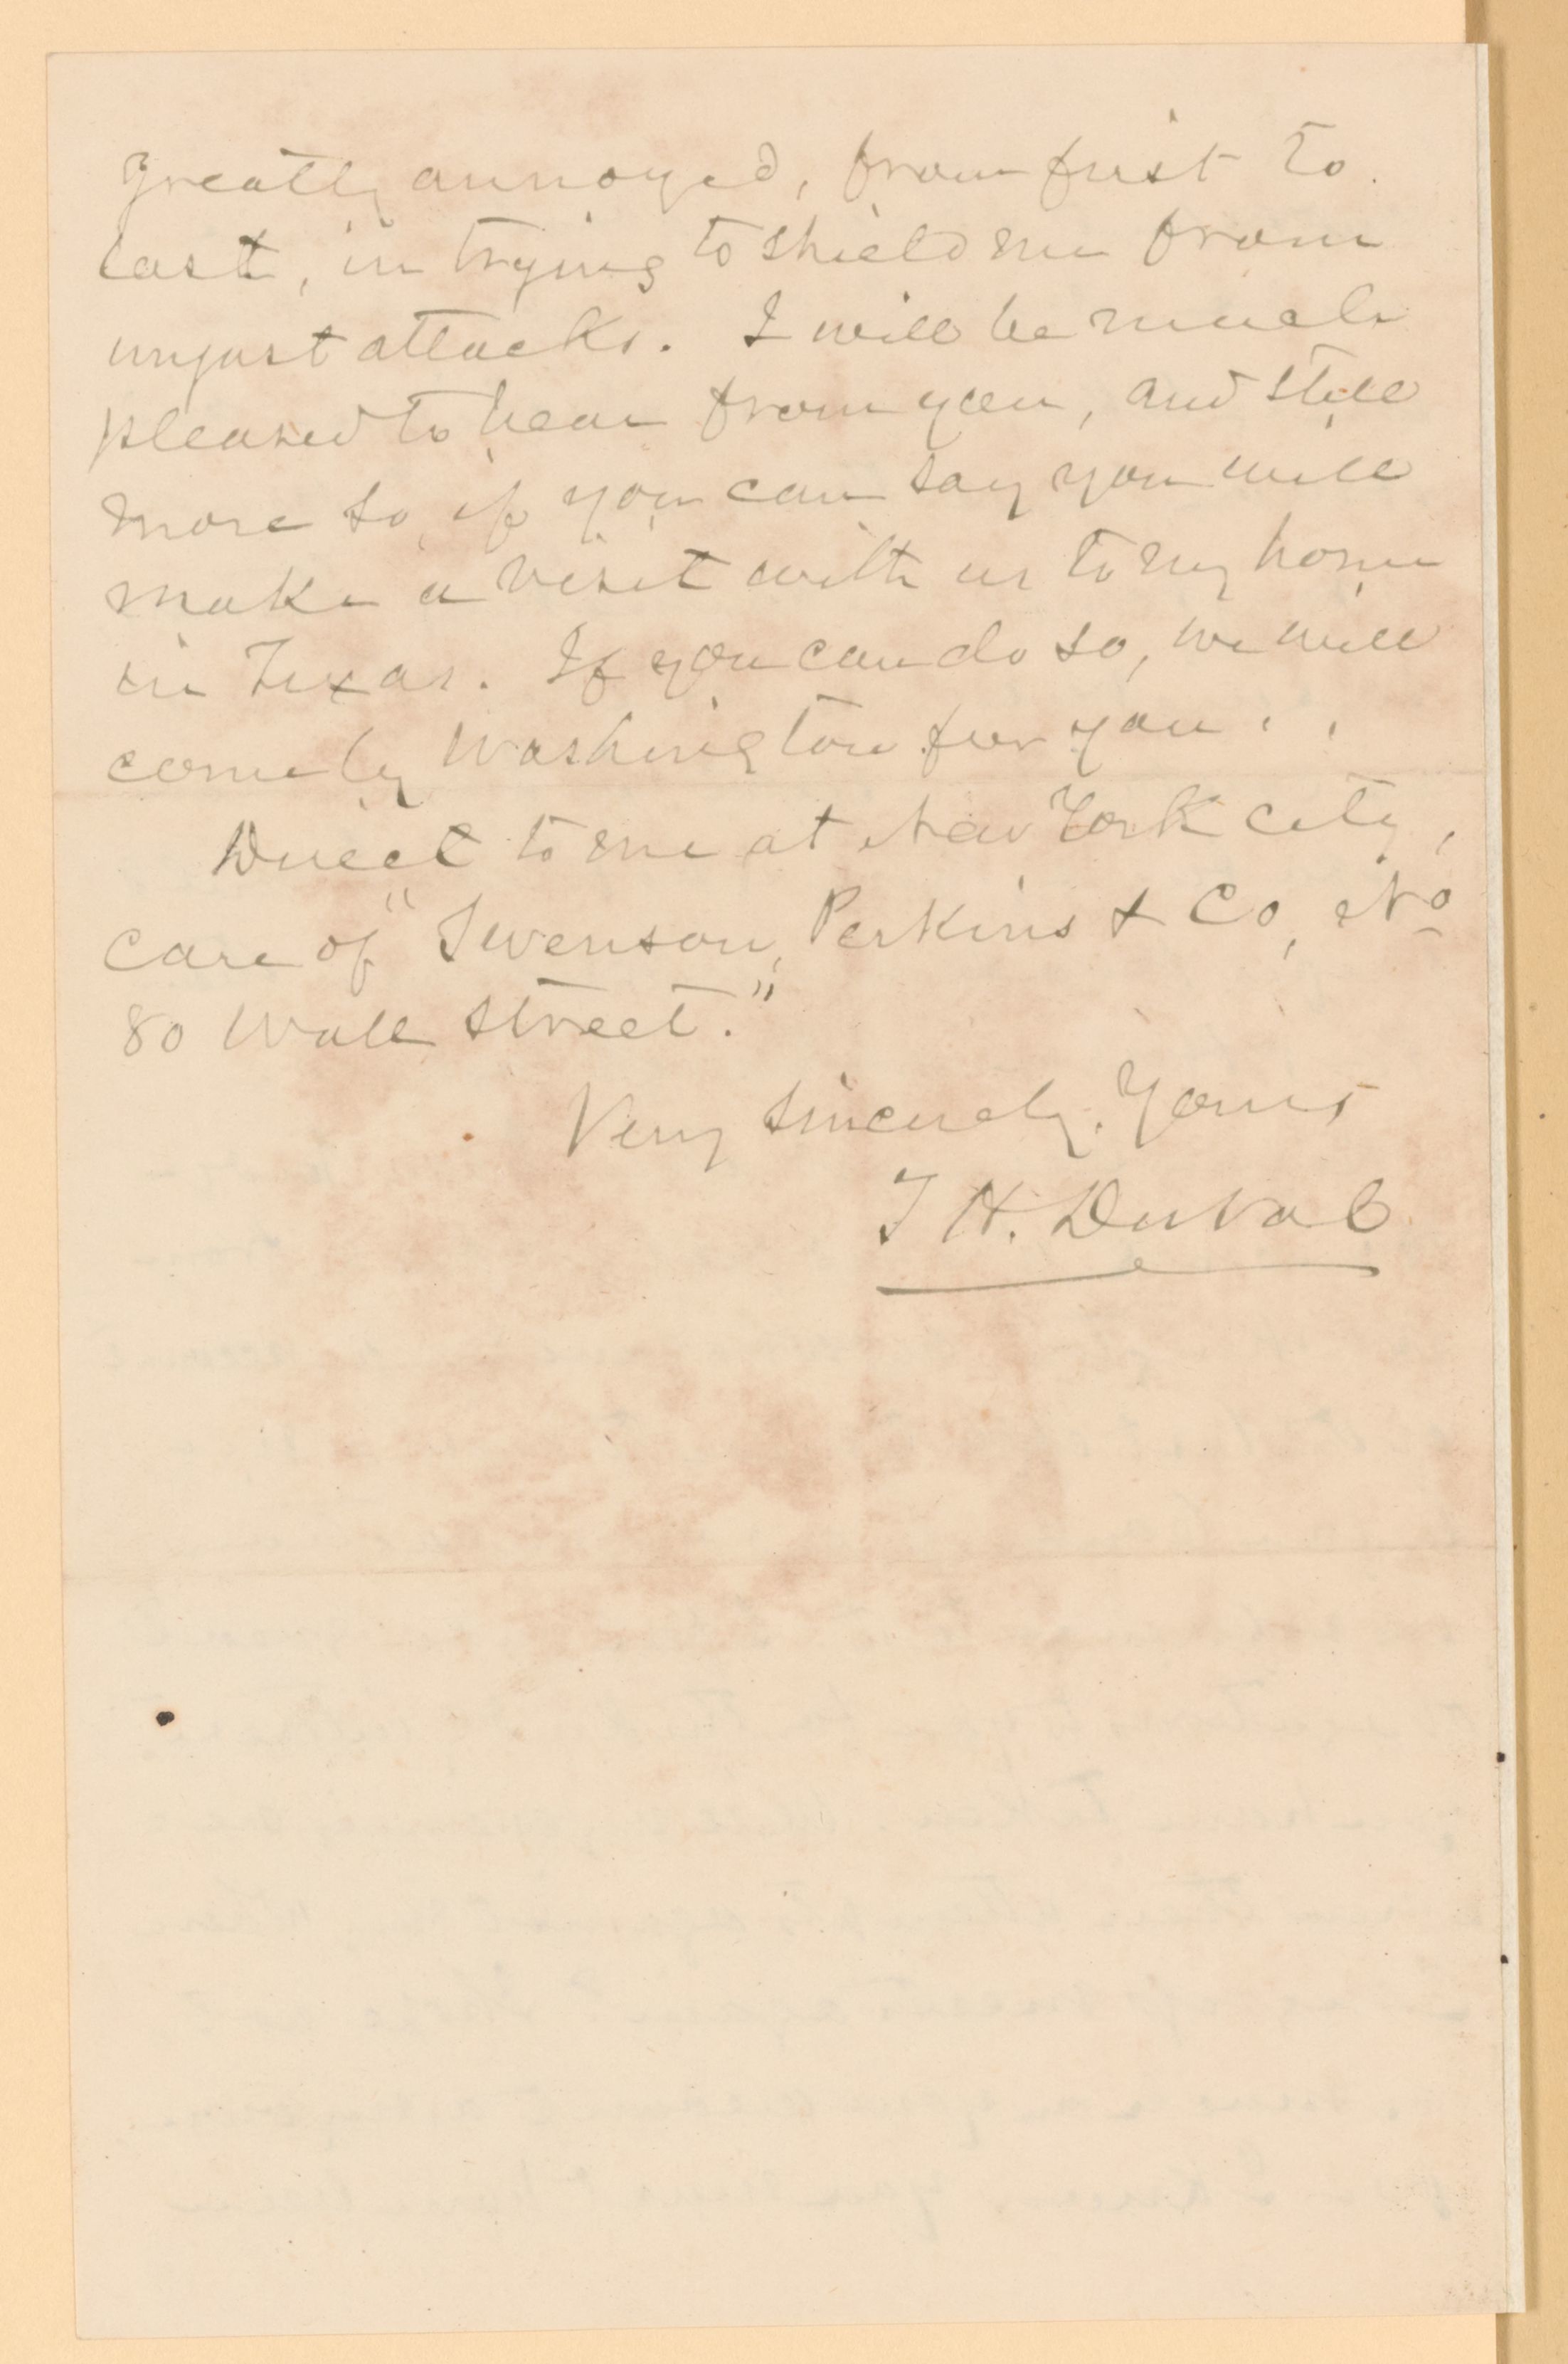 greatly annoyed, from first to
last, in trying to shield me from
unjust attacks. I will be much
pleased to hear from you, and still
more so, if you can say you will
make a visit with us to my home
in Texas. If you can do so, we will
come by Washington for you.
Direct to me at New York City,
care of "Swenson, Perkins & Co, No
80 Wall Street."
Very sincerely. Yours
T H. DuVal